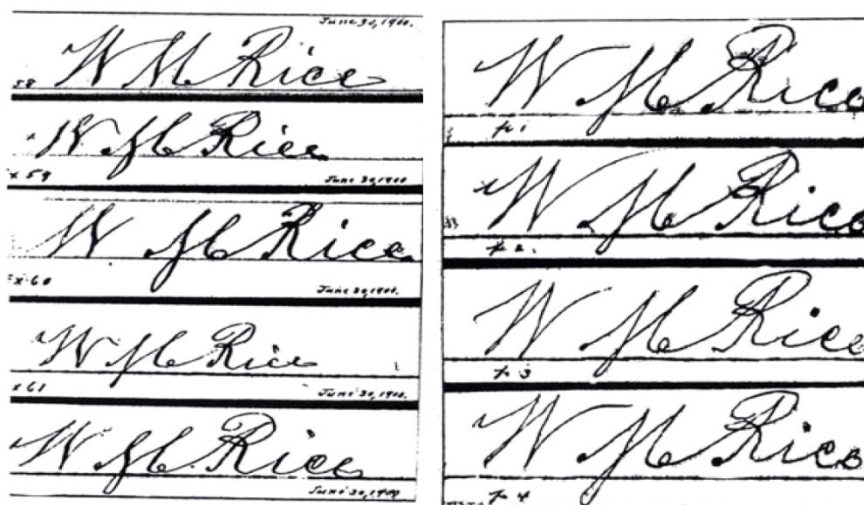 June 30, 1900.
W M Rice
58
W M Rice
x 59 June 30, 1900
W M Rice
Ex 60 June 30, 1900.
W M Rice
x 61 June 30, 1900.
W M Rice
June 30, 1900
W M Rice
p 1
W M Rice
p 2.
W M Rice
p 3
W M Rice
p 4